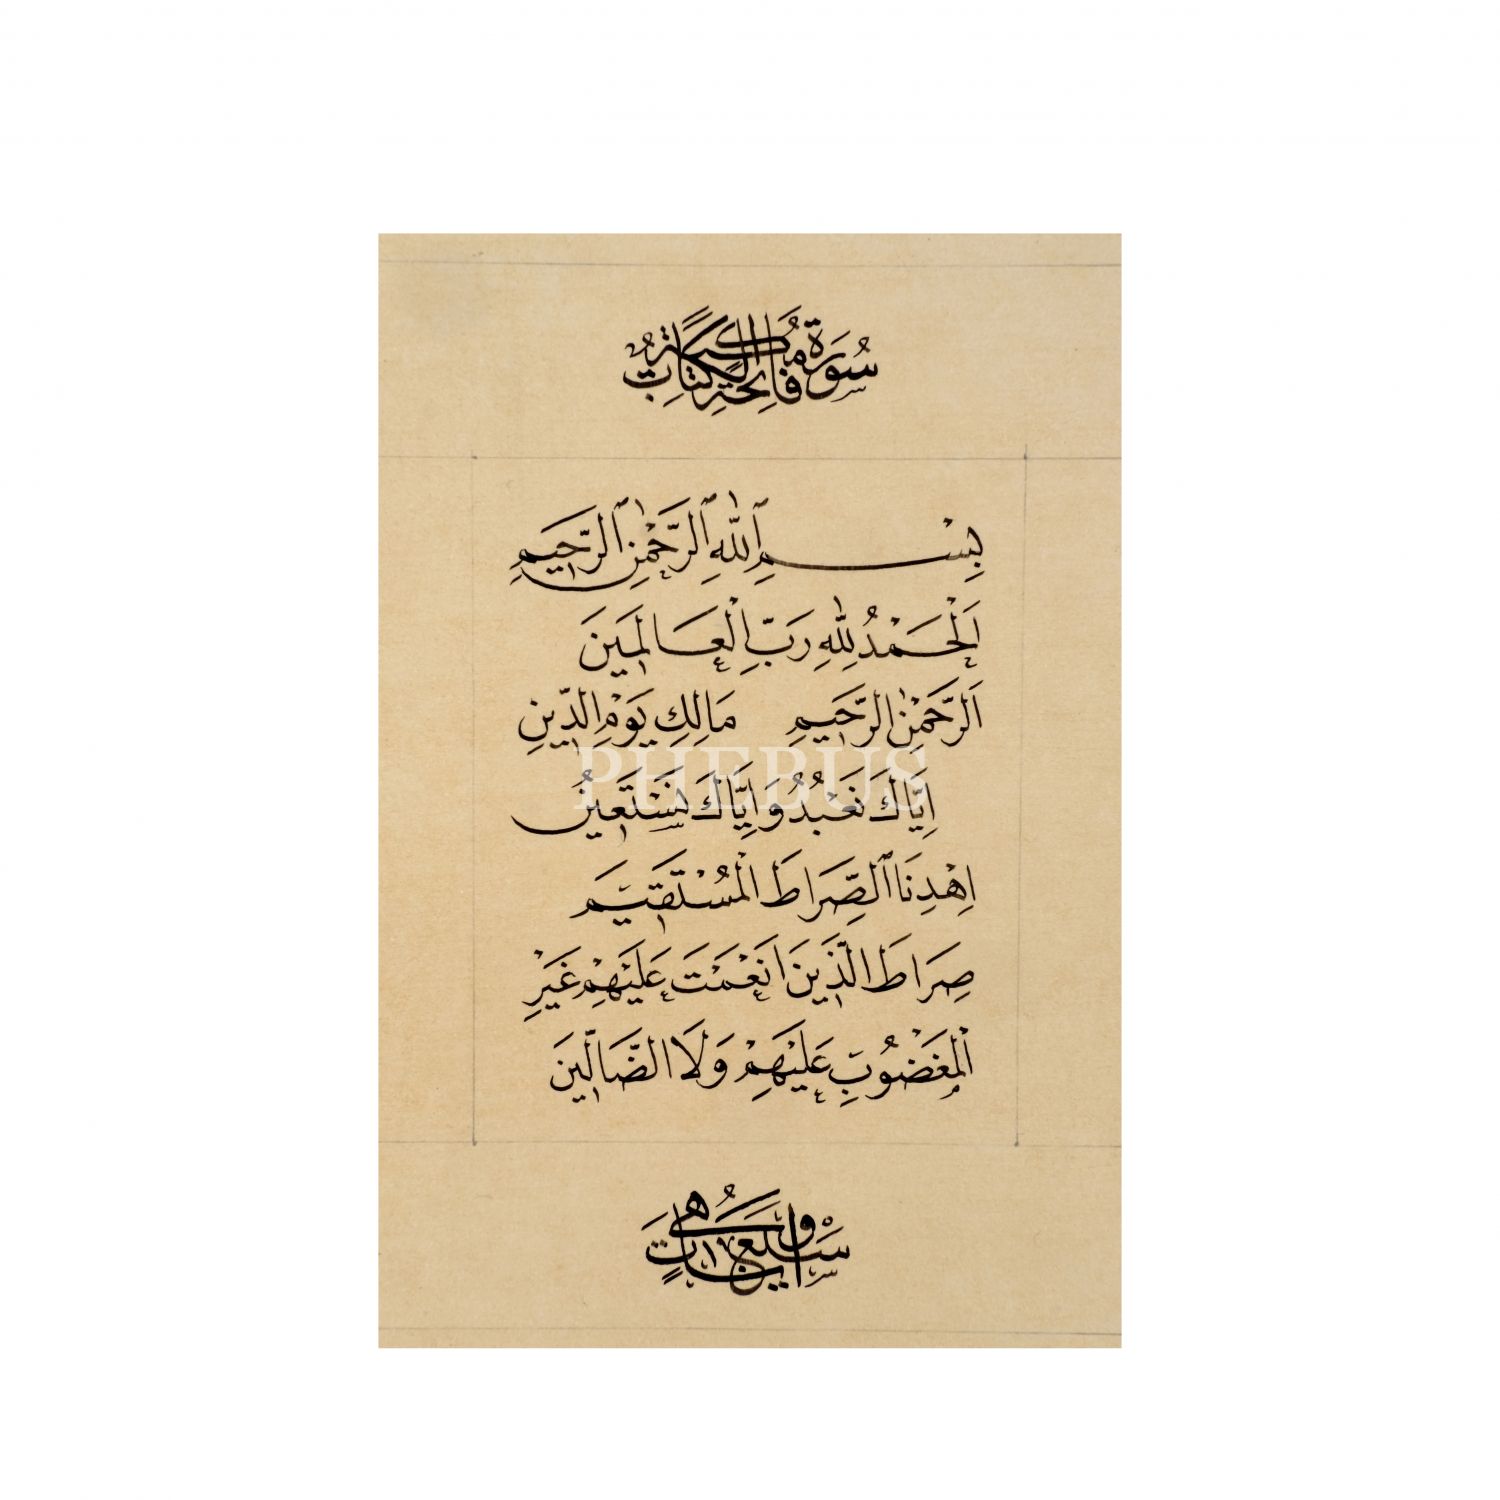 سُورَةُ فَاتِحَةِ الْكِتَابِ مَكِّيَّةٌ
بِسْمِ ٱللّٰهِ ٱلرَّحْمٰنِ ٱلرَّحِيمِ
اَلْحَمْدُ لِلّٰهِ رَبِّ الْعَالَمِينَ
اَلرَّحْمٰنِ الرَّحِيمِ مَالِكِ يَوْمِ الدِّينِ
PHEBUS
اِيَّاكَ نَعْبُدُ وَاِيَّاكَ نَسْتَعِينُ
اِهْدِنَا ٱلصِّرَاطَ الْمُسْتَقِيمَ
صِرَاطَ الَّذِينَ اَنْعَمْتَ عَلَيْهِمْ غَيْرِ
الْمَغْضُوبِ عَلَيْهِمْ وَلَا الضَّالِّينَ
وَهِيَ سَبْعُ اٰيَاتٍ